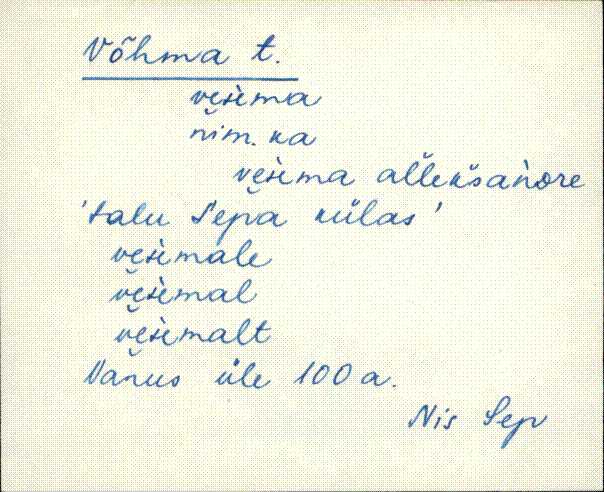 Võhma t.
vesema
nim. ka
vesema alleksandre
'talu Sepa külas'
vesemale
vesemal
vesemalt
Vanus üle 100 a.
Nis Sep